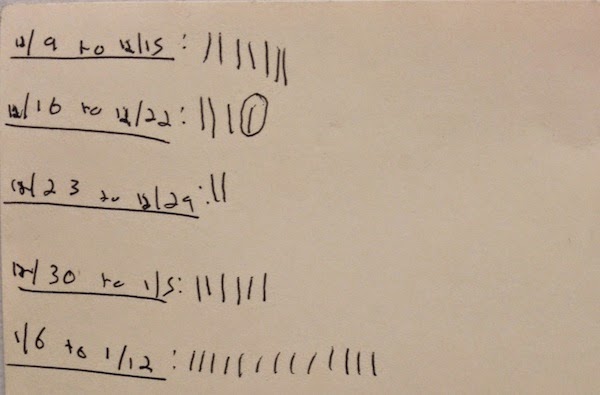 12/9 to 12/15: |||||||
12/16 to 12/22: ||||
12/23 to 12/29: ||
12/30 to 1/5: ||||||
1/6 to 1/12: